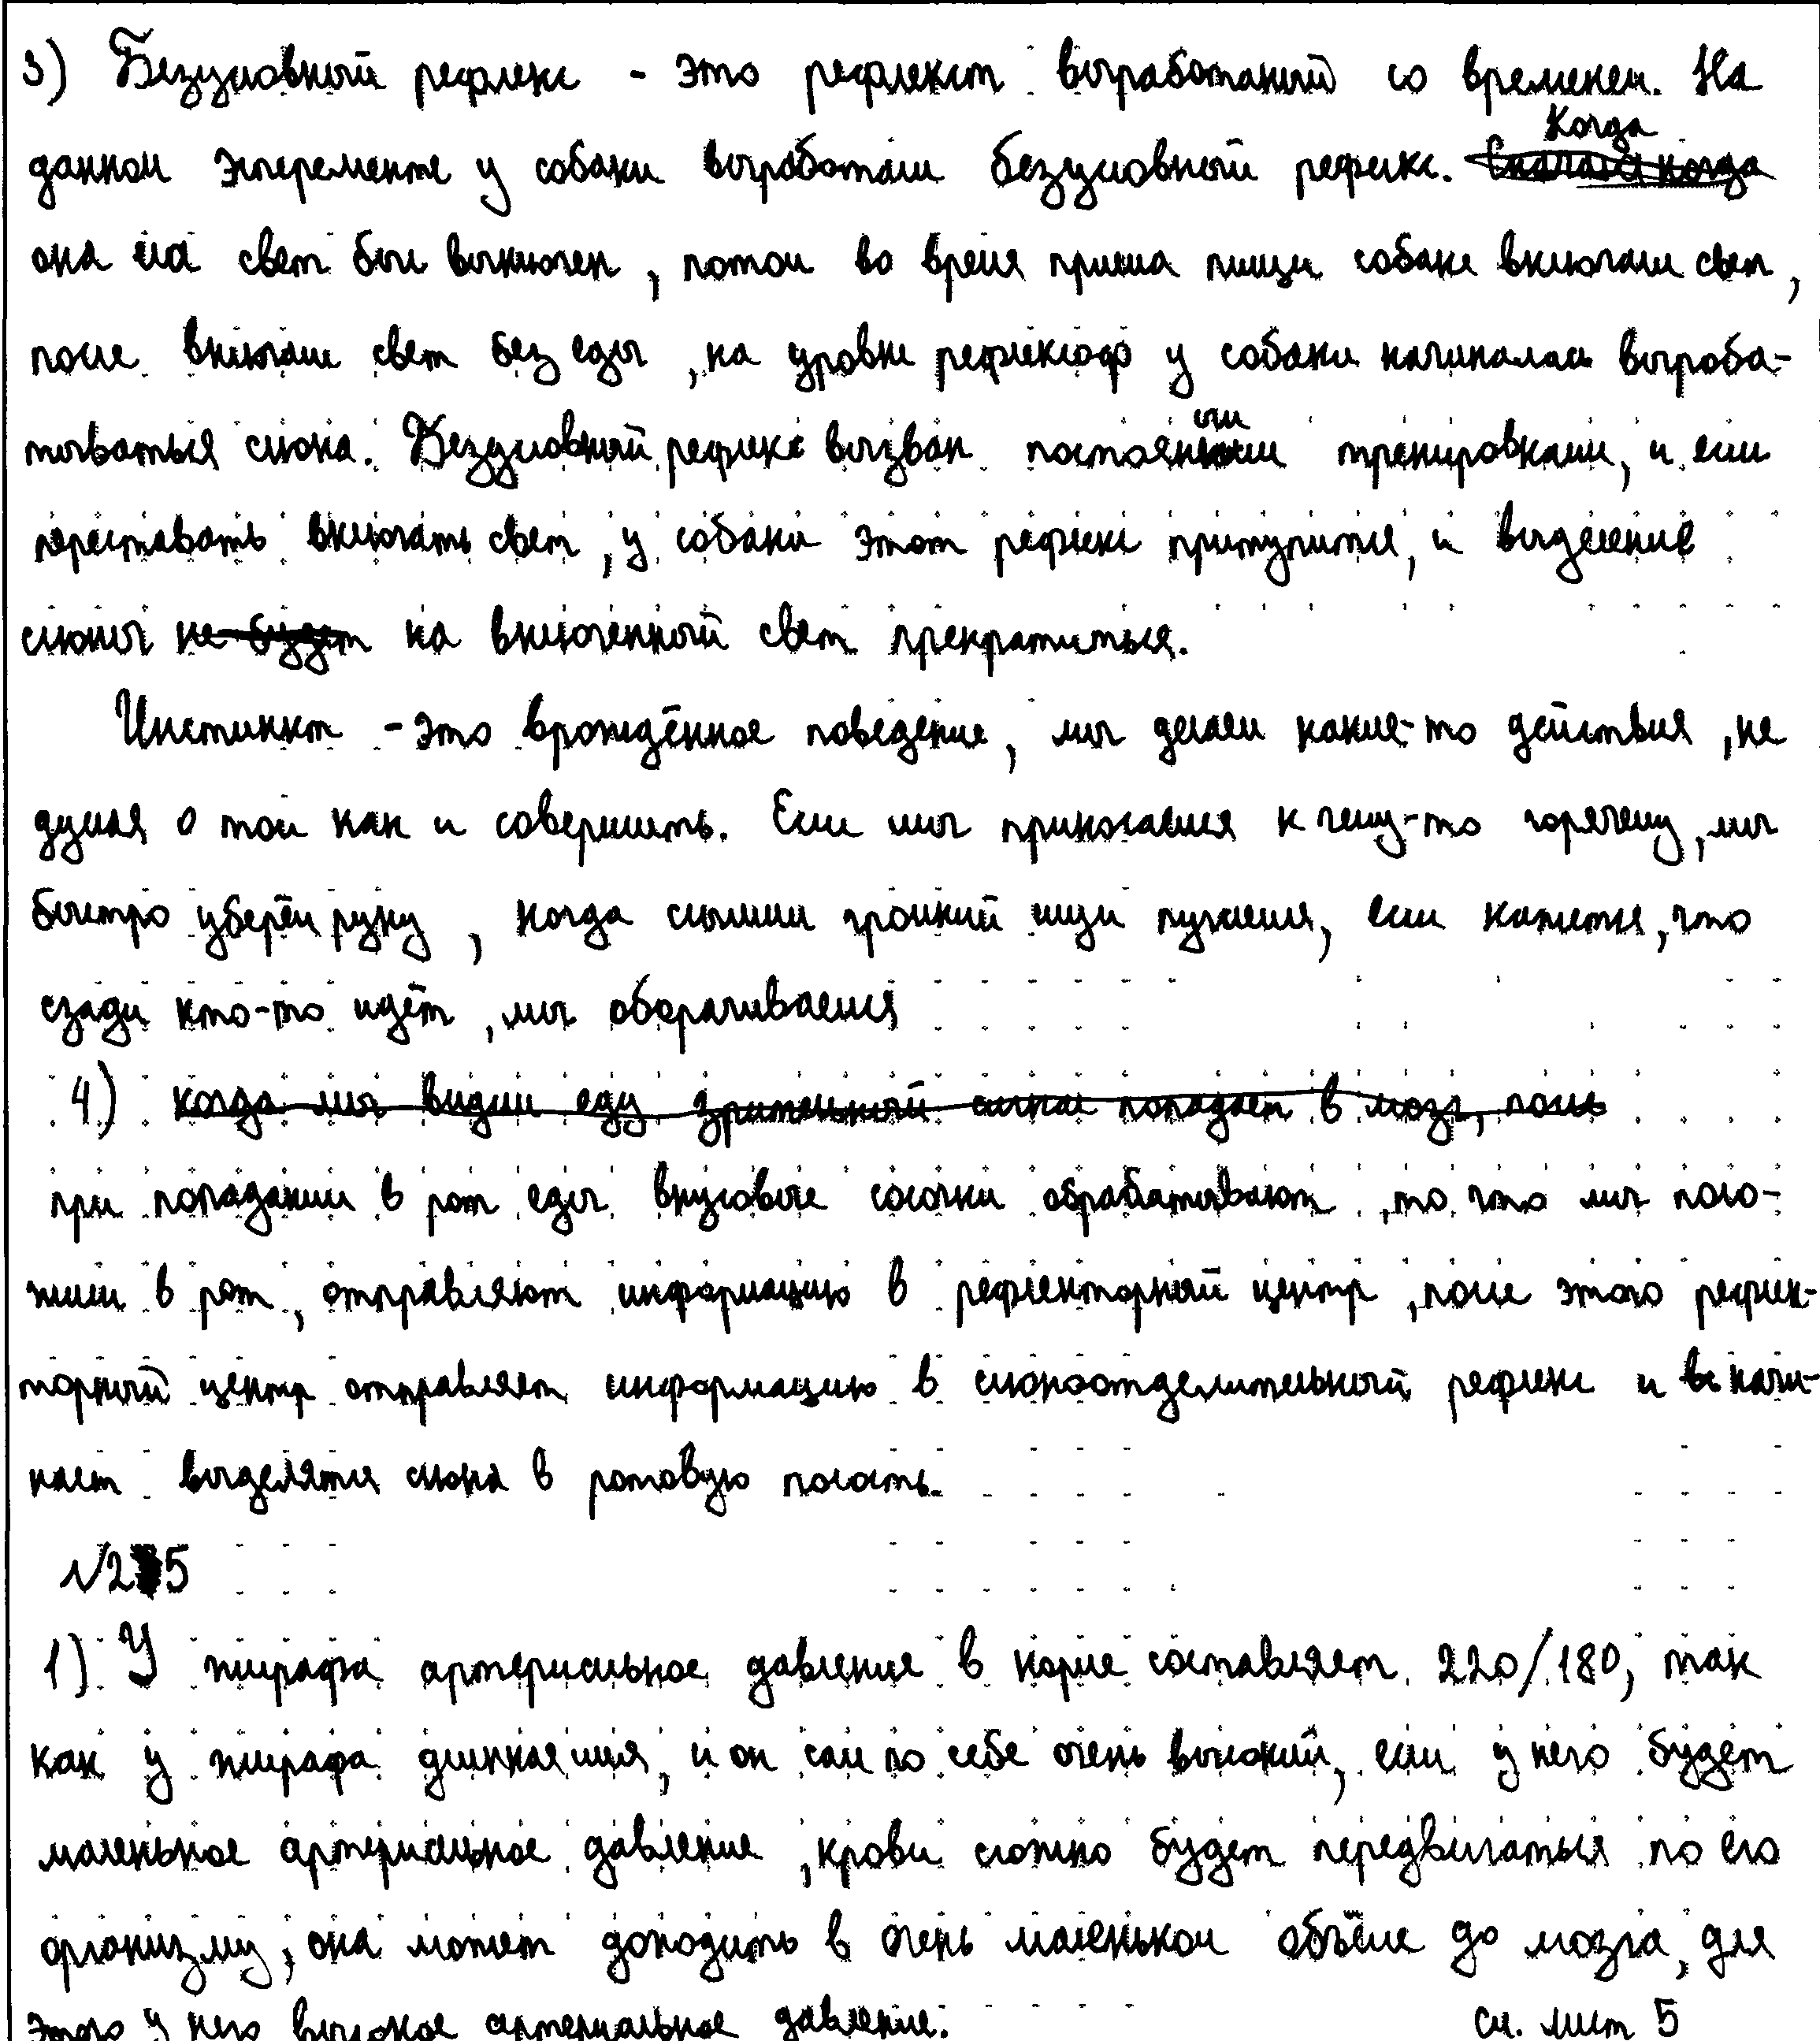 3) Безусловный рефлекс - это рефлекст выработаный со временем. На
данном эксперементе у собаки выработали безусловный рефлекс. Когда ~~Сначала когда~~
она ела свет был выключен, потом во время приема пищи собаке включали свет,
после включали свет без еды, на уровне рефлексоф у собаки начиналась выроба-
тываться слюна. Безусловный рефлекс вызван постояными тренировками, и если
переставать включать свет, у собаки этот рефлекс притупится, и выделение
слюны ~~не будет~~ на включенный свет прекратиться.
Инстинкт - это врождённое поведение, мы делаем какие-то действия, не
думая о том как и совершить. Если мы прикосаемся к чему-то горячему, мы
быстро уберём руку, когда слышим громкий шум пугаемся, если кажется, что
сзади кто-то идёт, мы оборачиваемся
4) ~~когда мы видим еду зрительный сигнал попадает в мозг, посль~~
при попадании в рот еды вкусовые сосочки обрабатывают, то что мы поло-
жили в рот, отправляют информацию в рефлекторный центр, после этого рефлек-
торный центр отправляет информацию в слюноотделительный рефлекс и начи-
нает выделятся слюна в ротовую полость.
№25
1) У жирафа артериальное давление в норме составляет 220/180, так
как у жирафа длинная шея, и он сам по себе очень высокий, если у него будет
маленькое артериальное давление, крови сложно будет передвигаться по его
организму, она может доходить в очень маленьком объёме до мозга, для
этого у него высокое артериальное давление. см. лист 5